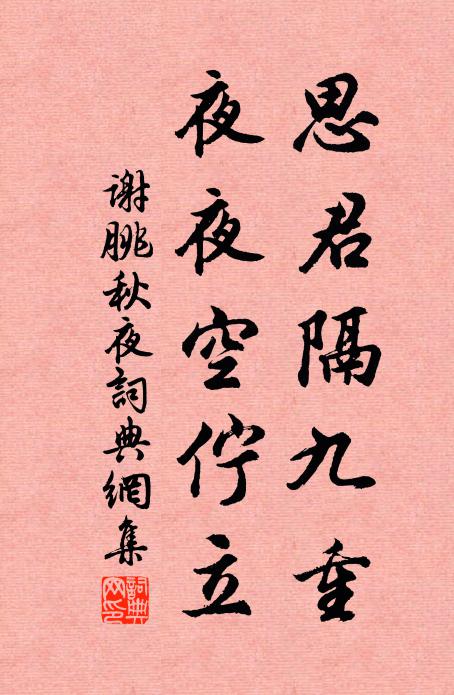 思君隔九重
夜夜空佇立
谢朓秋夜詞典網集
詞典
网印